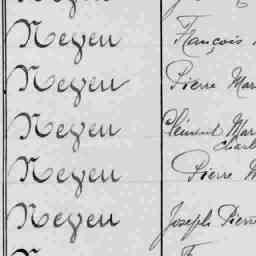 Neyen François
Neyen Pierre Mar
Neyen Clément Mar
Charl
Neyen Pierre M
Neyen Joseph Pierr